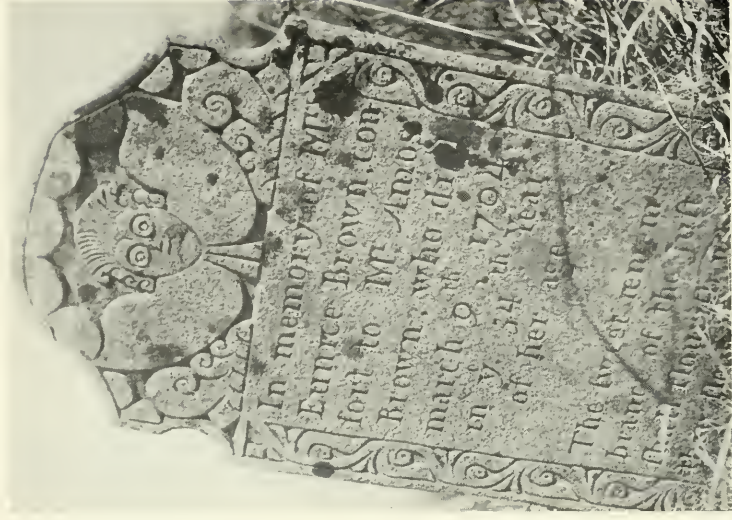 In memory of Mrs
Eunice Brown, con
fort to Mr Amos
Brown, who di
march 9 th 1794
in ye 34 th Year
of her age
The sweet rememb
brance of the just